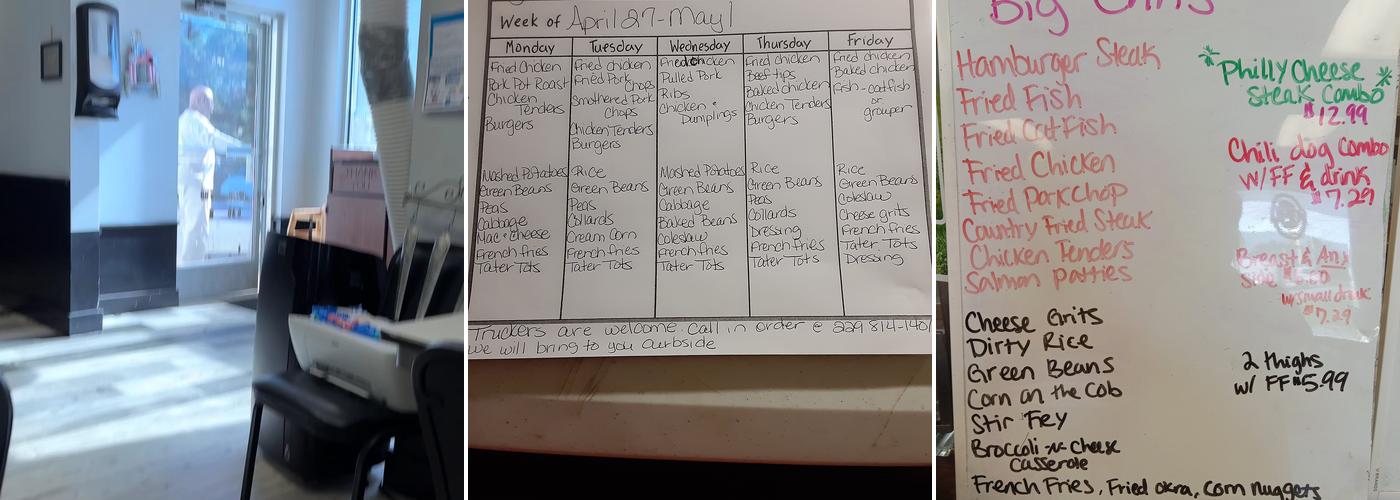 Week of April 27-May 1
Monday
Fried Chicken
Pork Pot Roast
Chicken Tenders
Burgers
Mashed Potatoes
Green Beans
Peas
Cabbage
Mac & Cheese
French fries
Tater Tots
Tuesday
Fried chicken
Fried Pork Chops
Smothered Pork
Chops
Chicken Tenders
Burgers
Rice
Green Beans
Peas
Collards
Cream Corn
French fries
Tater Tots
Wednesday
Fried chicken
Pulled Pork
Ribs
Chicken &
Dumplings
Mashed Potatoes
Green Beans
Cabbage
Baked Beans
Coleslaw
French fries
Tater Tots
Thursday
Fried chicken
Beef tips
Baked chicken
Chicken Tenders
Burgers
Rice
Green Beans
Peas
Collards
Dressing
French fries
Tater Tots
Friday
Fried chicken
Baked chicken
Fish-catfish
or
grouper
Rice
Green Beans
Coleslaw
Cheese grits
French fries
Tater Tots
Dressing
Truckers are welcome. Call in order @ 229 814-1401
we will bring to you curbside
Hamburger Steak
Fried Fish
Fried CatFish
Fried Chicken
Fried PorkChop
Country Fried Steak
Chicken Tenders
Salmon patties
Cheese Grits
Dirty Rice
Green Beans
Corn on the Cob
Stir Fry
Broccoli -n- Cheese
Casserole
French Fries, Fried okra, Corn nuggets
*Philly Cheese
Steak Combo*
$12.99
Chili dog combo
w/FF & drink
$7.29
Breast & Any
Side $6.60
w/small drink
$7.29
2 thighs
w/ FF $5.99